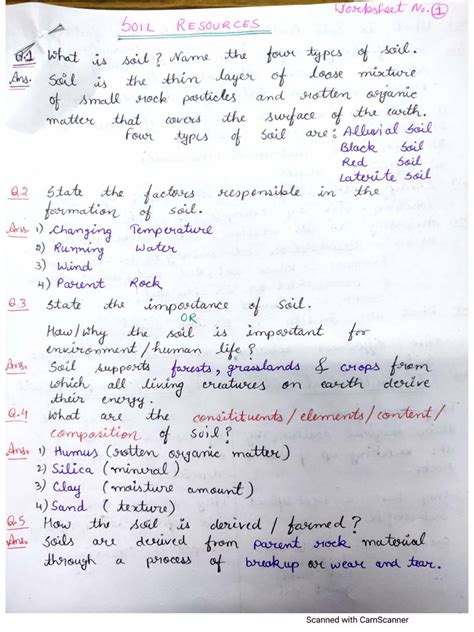 Worksheet No. 1
SOIL RESOURCES
Q.1 What is soil? Name the four types of soil.
Ans. Soil is the thin layer of loose mixture
of small rock particles and rotten organic
matter that covers the surface of the earth.
Four types of soil are: Alluvial Soil
Black Soil
Red Soil
Laterite Soil
Q.2 State the factors responsible in the
formation of soil.
Ans. 1) Changing Temperature
2) Running Water
3) Wind
4) Parent Rock
Q.3 State the importance of Soil.
OR
How/Why the soil is important for
environment/human life?
Ans. Soil supports forests, grasslands & crops from
which all living creatures on earth derive
their energy.
Q.4 What are the constituents/elements/content/
composition of soil?
Ans. 1) Humus (rotten organic matter)
2) Silica (mineral)
3) Clay (moisture amount)
4) Sand (texture)
Q.5 How the soil is derived/formed?
Ans. Soils are derived from parent rock material
through a process of breakup or wear and tear.
Scanned with CamScanner